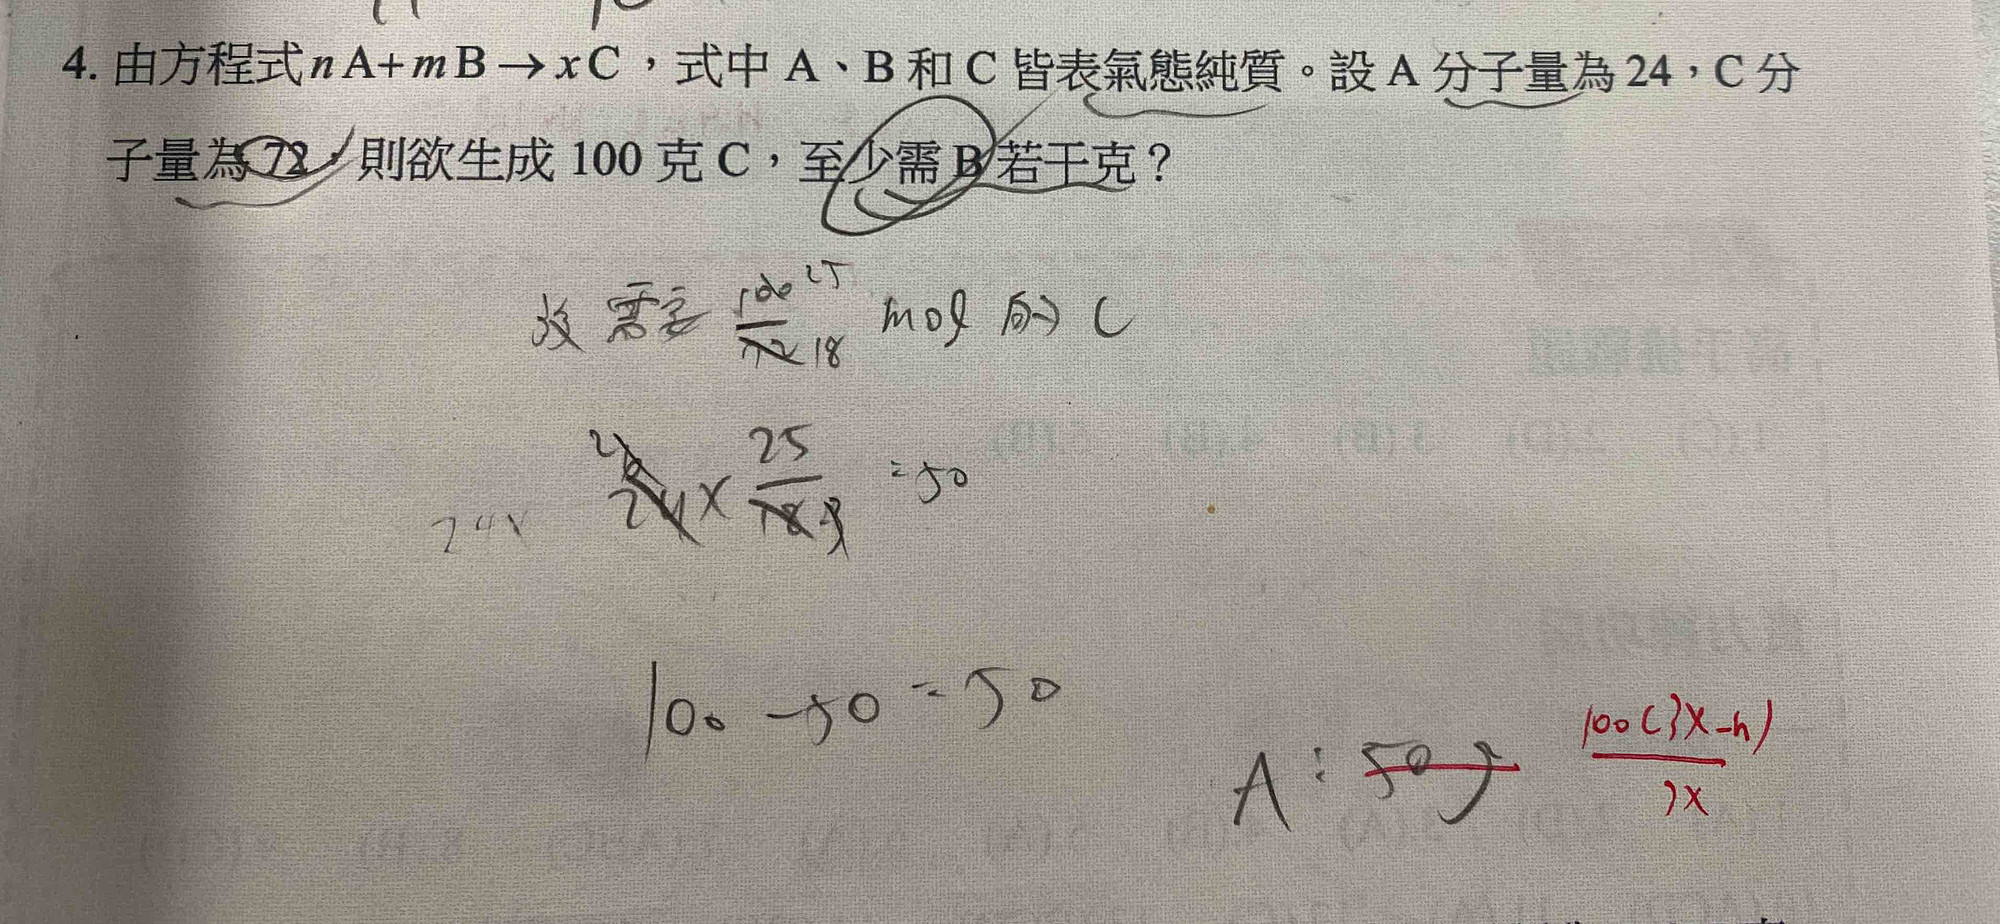 4. 由方程式 n A + m B → x C，式中 A、B 和 C 皆表氣態純質。設 A 分子量為 24，C 分
子量為 72，則欲生成 100 克 C，至少需 B 若干克？
故需要 100/72 25/18 mol 的 C
24 × 25/18 = 50
24×
100 - 50 = 50
A : 50 g
100(3x-n)/3x